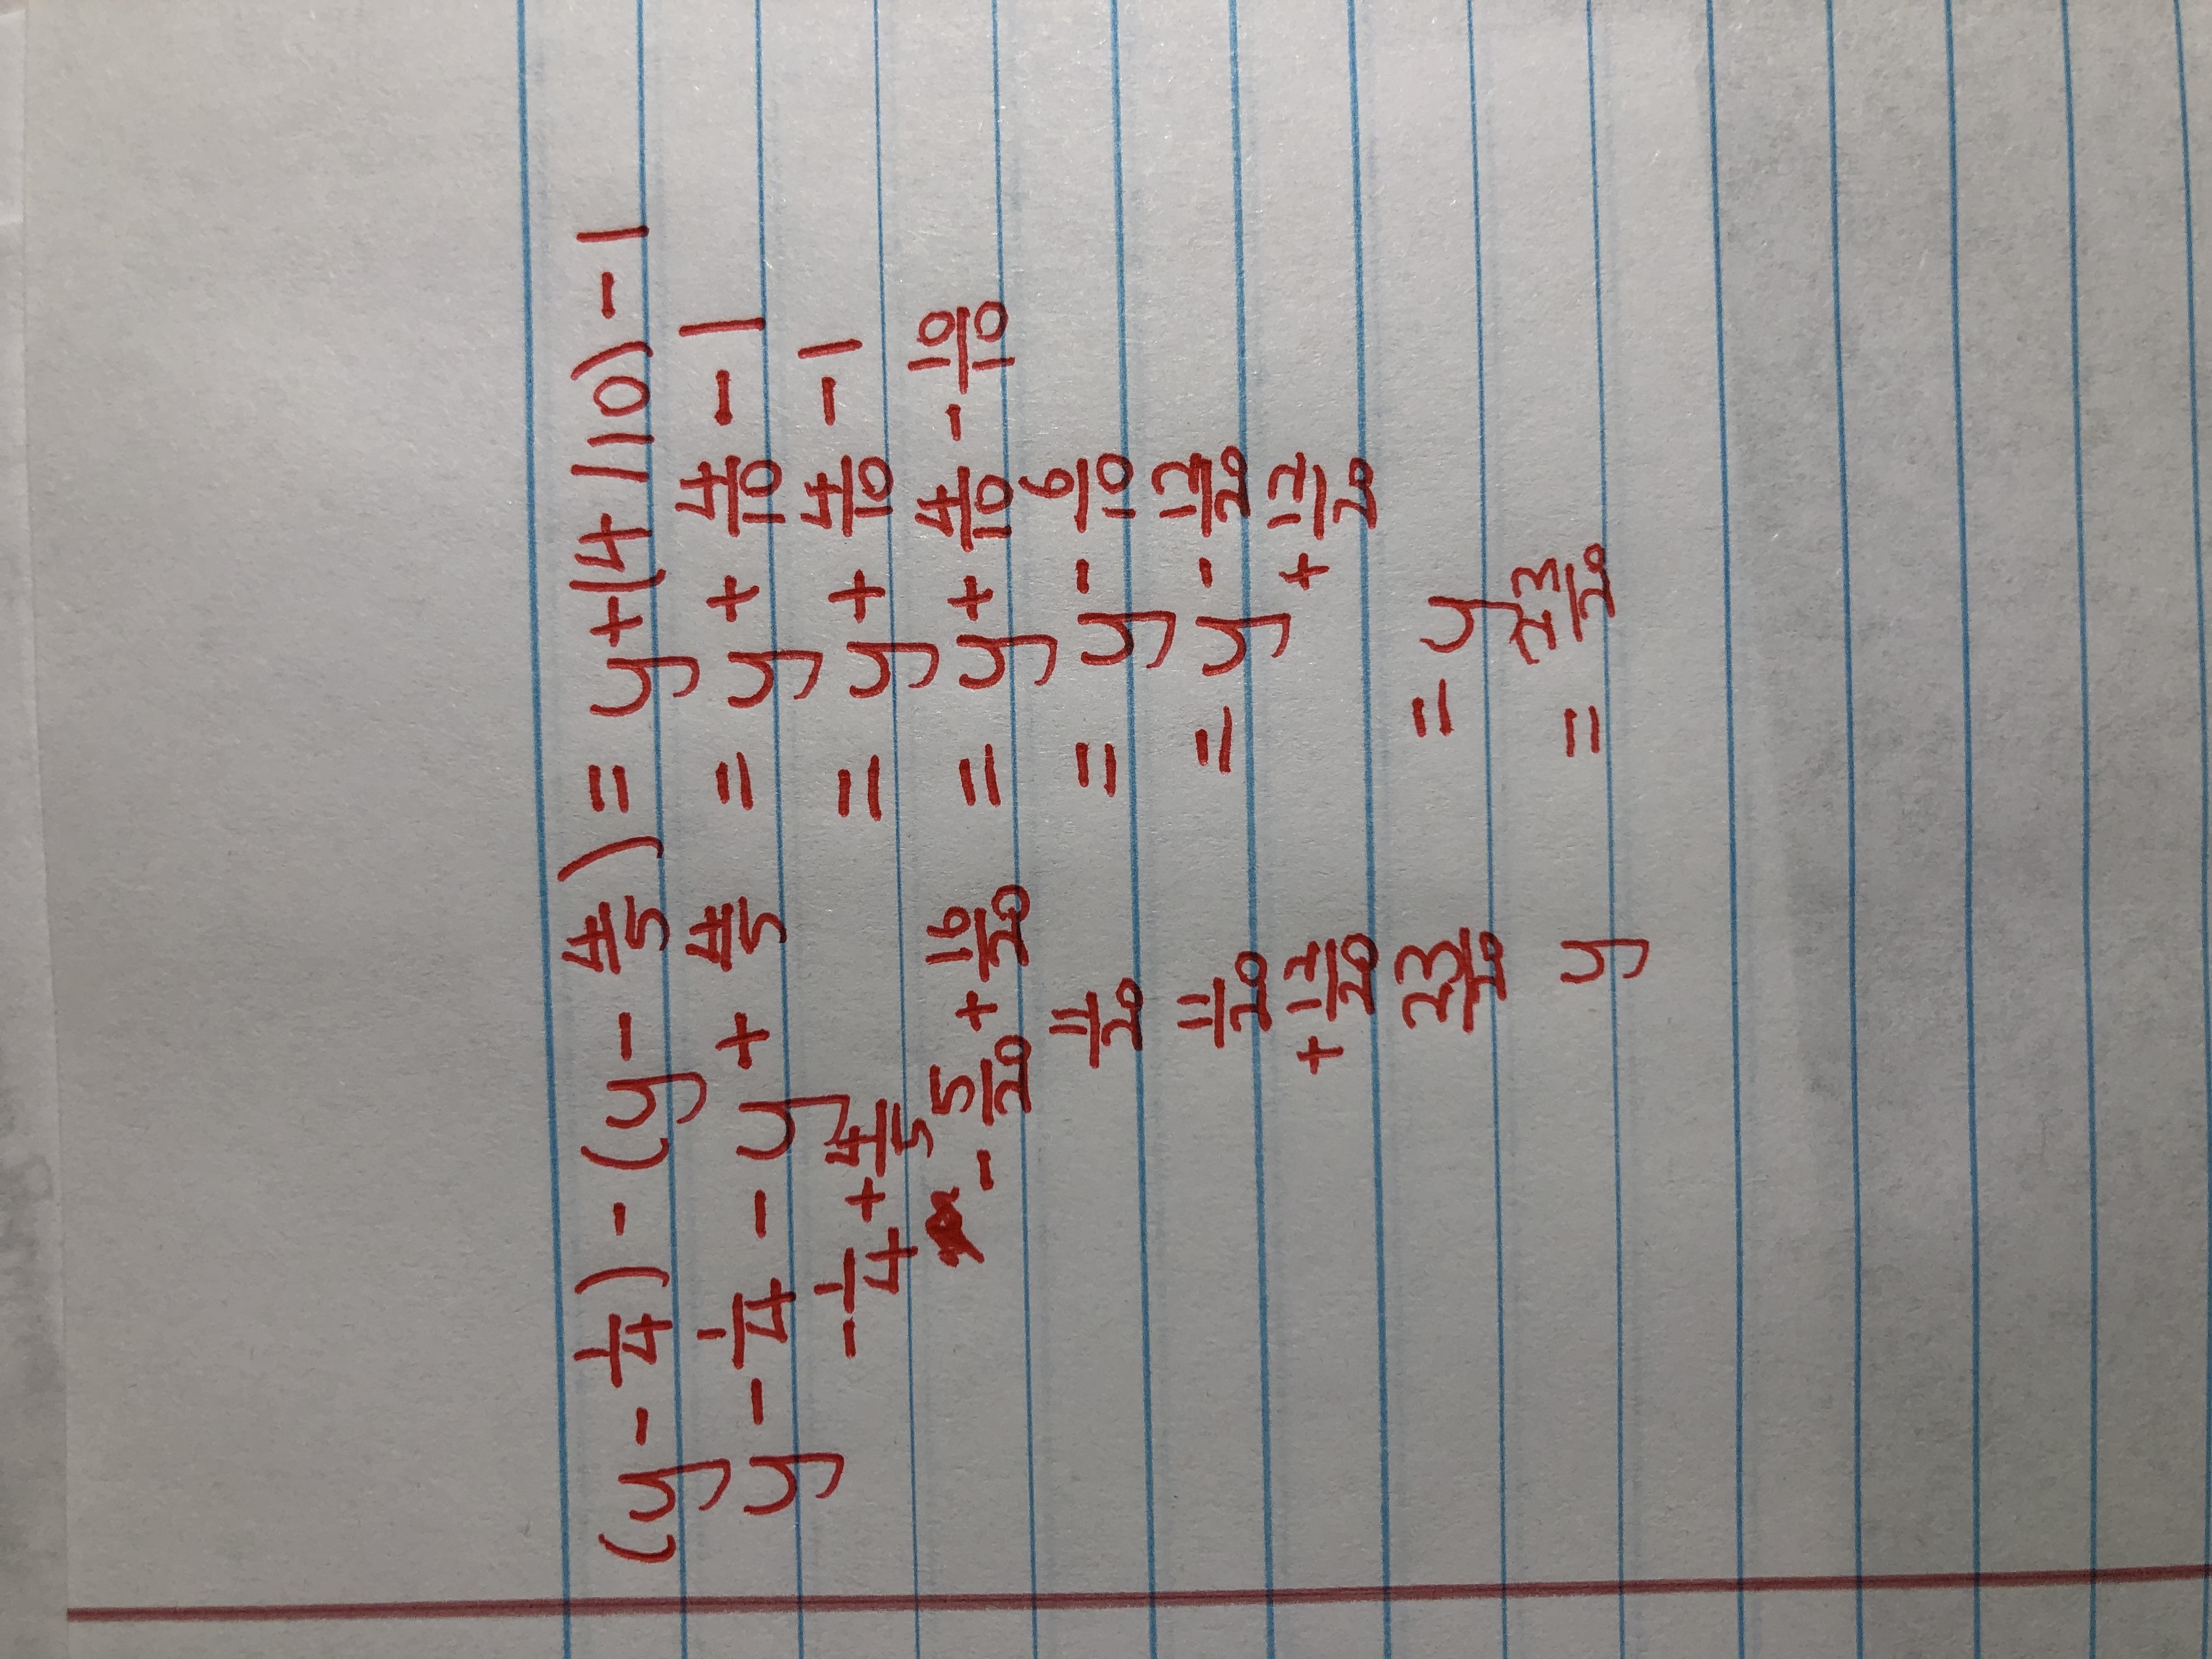 (y - 1/4) - (y - 4/5) = y + (4/10) - 1
y - 1/4 - y + 4/5 = y + 4/10 - 1
- 1/4 + 4/5 = y + 4/10 - 1
- 5/20 + 16/20 = y + 4/10 - 10/10
11/20 = y - 6/10
11/20 = y - 12/20
+ 12/20 + 12/20
23/20 = y
y = 23/20